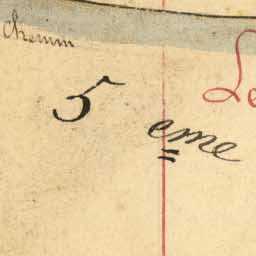 chemin
5 eme
Le